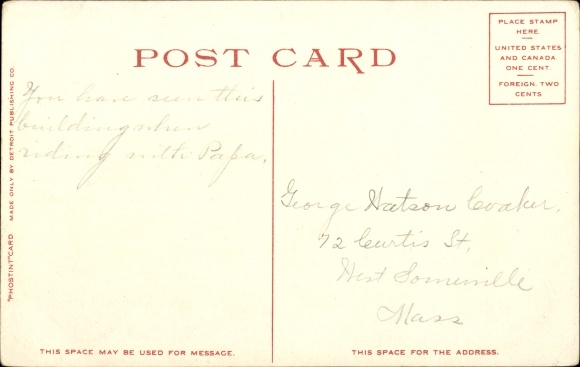 POST CARD
PLACE STAMP
HERE.
UNITED STATES
AND CANADA
ONE CENT.
FOREIGN, TWO
CENTS
"PHOSTINT" CARD MADE ONLY BY DETROIT PUBLISHING CO.
You have seen this
building when
riding with Papa.
George Watson Coaker,
72 Curtis St,
West Somerville
Mass
THIS SPACE MAY BE USED FOR MESSAGE.
THIS SPACE FOR THE ADDRESS.